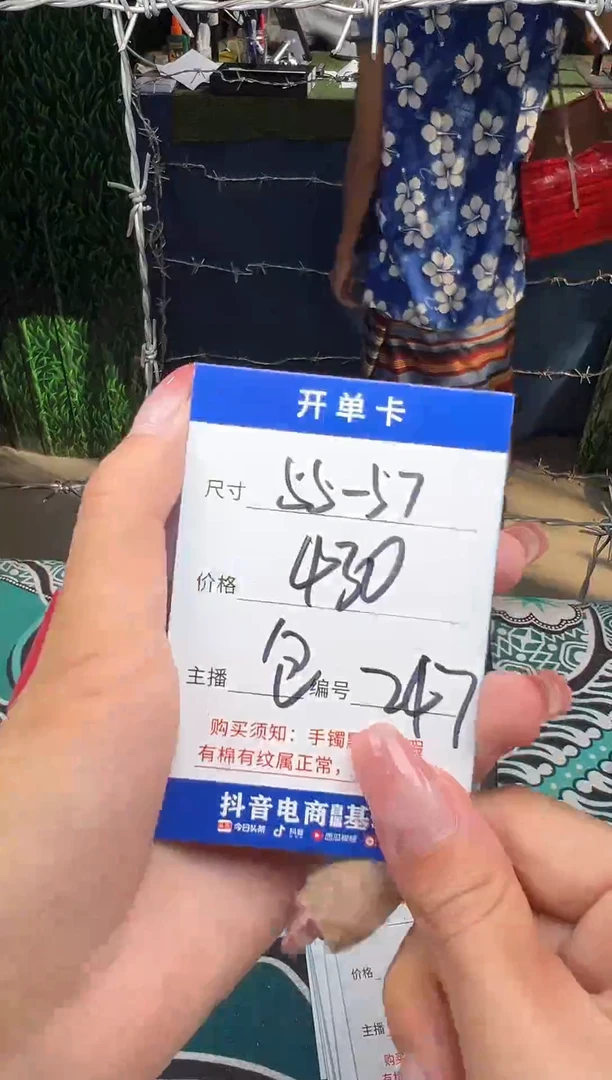 开单卡
尺寸 55-57
价格 430
主播 包 编号 247
购买须知：手镯
有棉有纹属正常，
抖音电商直播基
今日头条 抖音 西瓜视频
价格
主播
购
有